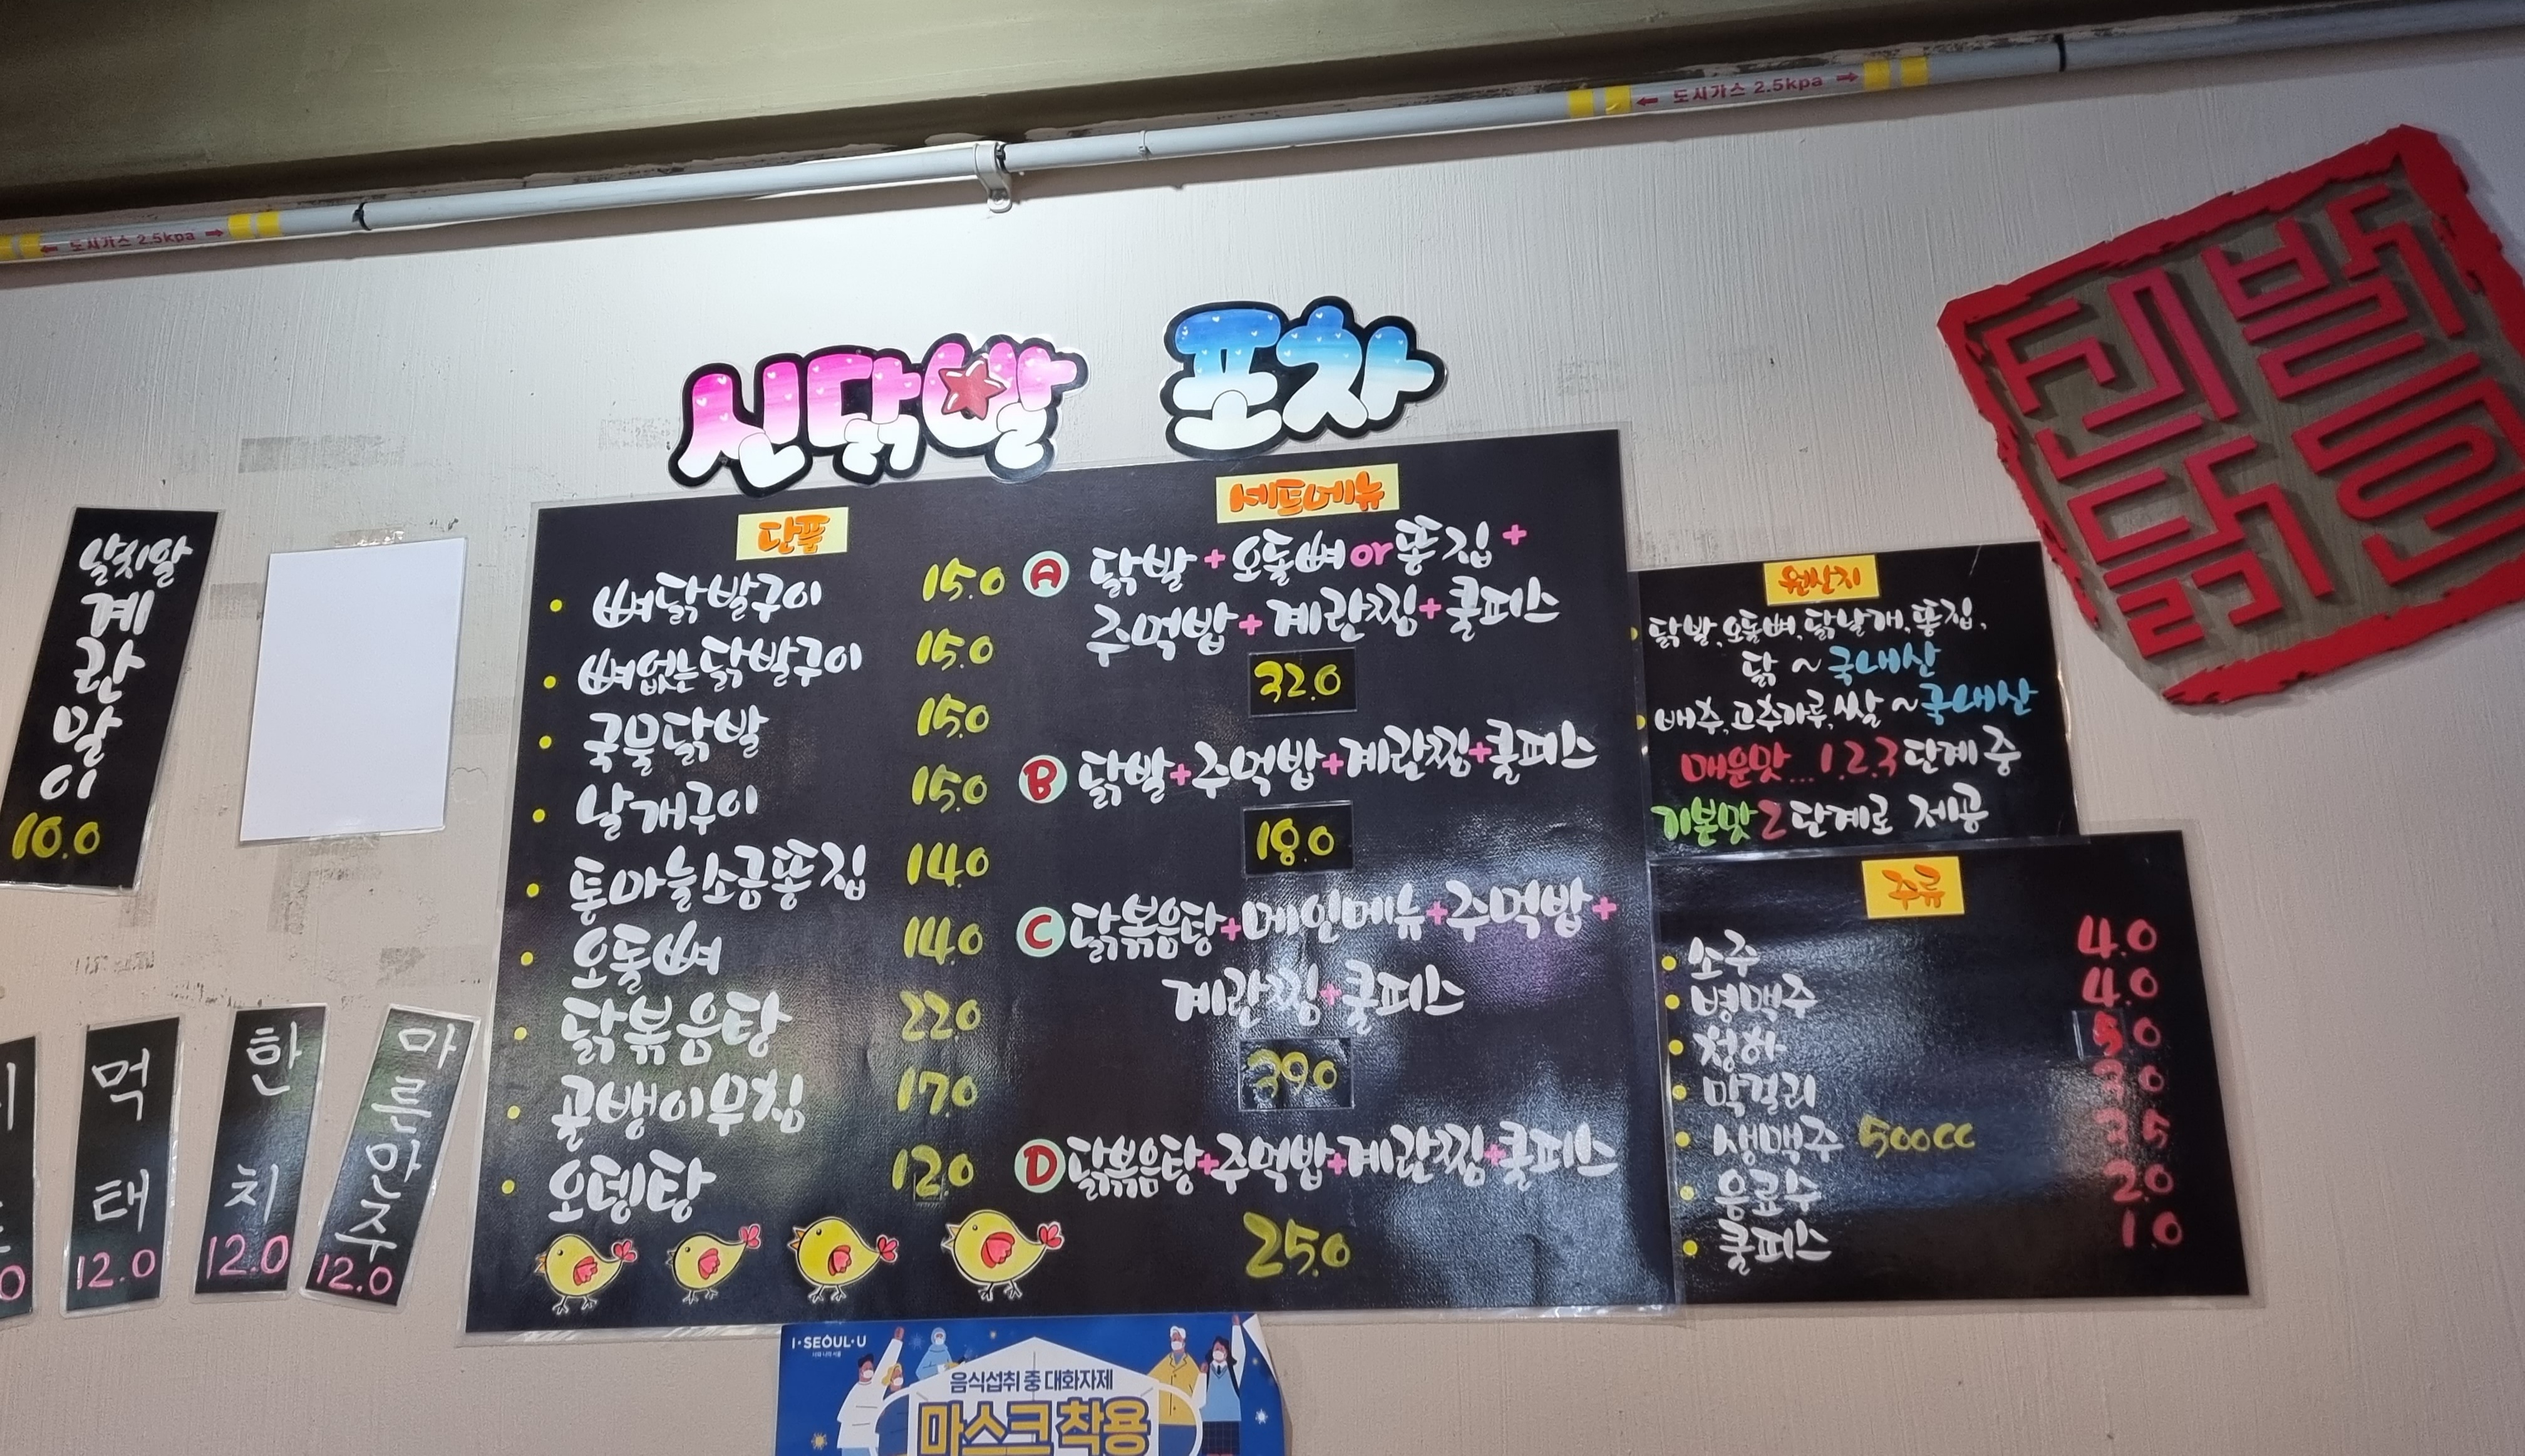 ← 도시가스 2.5kpa →
← 도시가스 2.5kpa →
신닭발 포차
날치알
계
란
말
이
10.0
먹
태
12.0
한
치
12.0
마
른
안
주
12.0
단품
뼈닭발구이 15.0
뼈없는닭발구이 15.0
국물닭발 15.0
날개구이 15.0
통마늘소금똥집 14.0
오돌뼈 14.0
닭볶음탕 22.0
골뱅이무침 17.0
오뎅탕 12.0
세트메뉴
A 닭발+오돌뼈or똥집+
주먹밥+계란찜+쿨피스
32.0
B 닭발+주먹밥+계란찜+쿨피스
18.0
C 닭볶음탕+메인메뉴+주먹밥+
계란찜+쿨피스
39.0
D 닭볶음탕+주먹밥+계란찜+쿨피스
25.0
원산지
닭발,오돌뼈,닭날개,똥집,
닭~국내산
배추,고추가루,쌀~국내산
매운맛...1.2.3단계 중
기본맛2단계로 제공
주류
소주 4.0
병맥주 4.0
청하 5.0
막걸리 3.0
생맥주 500cc 3.5
음료수 2.0
쿨피스 1.0
I·SEOUL·U
음식섭취 중 대화자제
마스크 착용